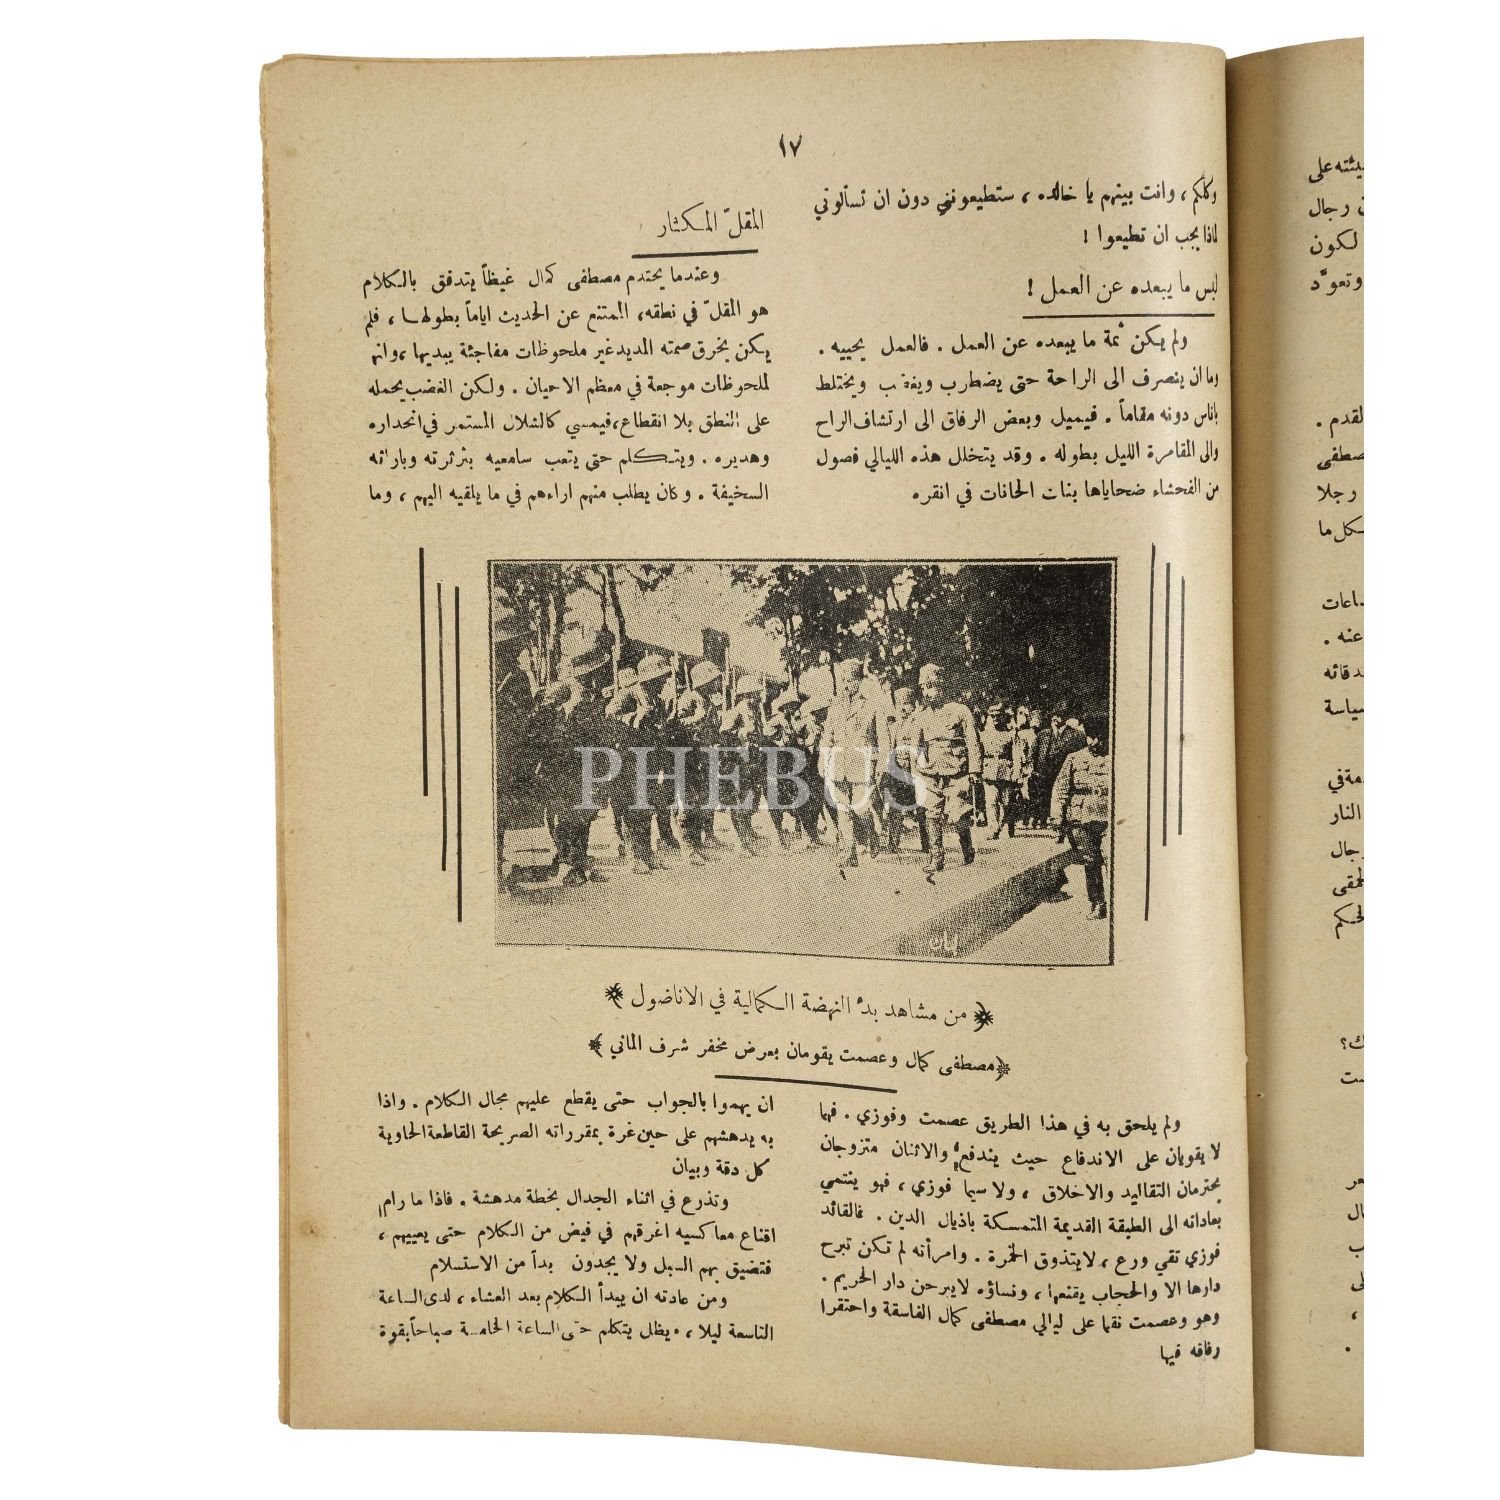 ١٧
وكلكم ، وانت بينهم يا خالده ، ستطيعونني دون ان تسألوني
لماذا يجب ان تطيعوا !
ليس ما يبعده عن العمل !
ولم يكن ثمة ما يبعده عن العمل . فالعمل يحييه .
وما ان ينصرف الى الراحة حتى يضطرب ويغضب ويختلط
باناس دونه مقاماً . فيميل وبعض الرفاق الى ارتشاف الراح
والى المقامرة الليل بطوله . وقد يتخلل هذه الليالي فصول
من الفحشاء ضحاياها بنات الحانات في انقره
المقلّ المكثار
وعندما يحتدم مصطفى كمال غيظاً يتدفق بالكلام
هو المقلّ في نطقه، الممتنع عن الحديث اياماً بطولها ، فلم
يكن يخرق صمته المديد غير ملحوظات مفاجئة يبديها ، وانها
لملحوظات موجعة في معظم الاحيان . ولكن الغضب يحمله
على النطق بلا انقطاع، فيمسي كالشلال المستمر في انحداره
وهديره . ويتكلم حتى يتعب سامعيه بثرثرته وبارائه
السخيفة . وكان يطلب منهم اراءهم في ما يلقيه اليهم ، وما
PHEBUS
من مشاهد بدء النهضة الكمالية في الاناضول
مصطفى كمال وعصمت يقومان بعرض مخفر شرف الماني
ولم يلحق به في هذا الطريق عصمت وفوزي . فهما
لا يقويان على الاندفاع حيث يندفع، والاثنان متزوجان
يحترمان التقاليد والاخلاق ، ولا سيما فوزي ، فهو ينتمي
بعاداته الى الطبقة القديمة المتمسكة باذيال الدين . فالقائد
فوزي تقي ورع ، لا يتذوق الخمرة . وامرأته لم تكن تبرح
دارها الا والحجاب يقنعها ، ونساؤه لا يبرحن دار الحريم .
وهو وعصمت نقما على ليالي مصطفى كمال الفاسقة واحتقرا
رفاقه فيها
ان يهموا بالجواب حتى يقطع عليهم مجال الكلام . واذا
به يدهشهم على حين غرة بمقرراته الصريحة القاطعة الحاوية
كل دقة وبيان
وتذرع في اثناء الجدال بخطة مدهشة . فاذا ما رام
اقناع معاكسيه اغرقهم في فيض من الكلام حتى يعييهم ،
فتضيق بهم السبل ولا يجدون بداً من الاستسلام
ومن عادته ان يبدأ الكلام بعد العشاء ، لدى الساعة
التاسعة ليلا ، ويظل يتكلم حتى الساعة الخامسة صباحاً بقوة
رجال
لكون
وتعوّد
القدم .
رجلا
عنه .
النار